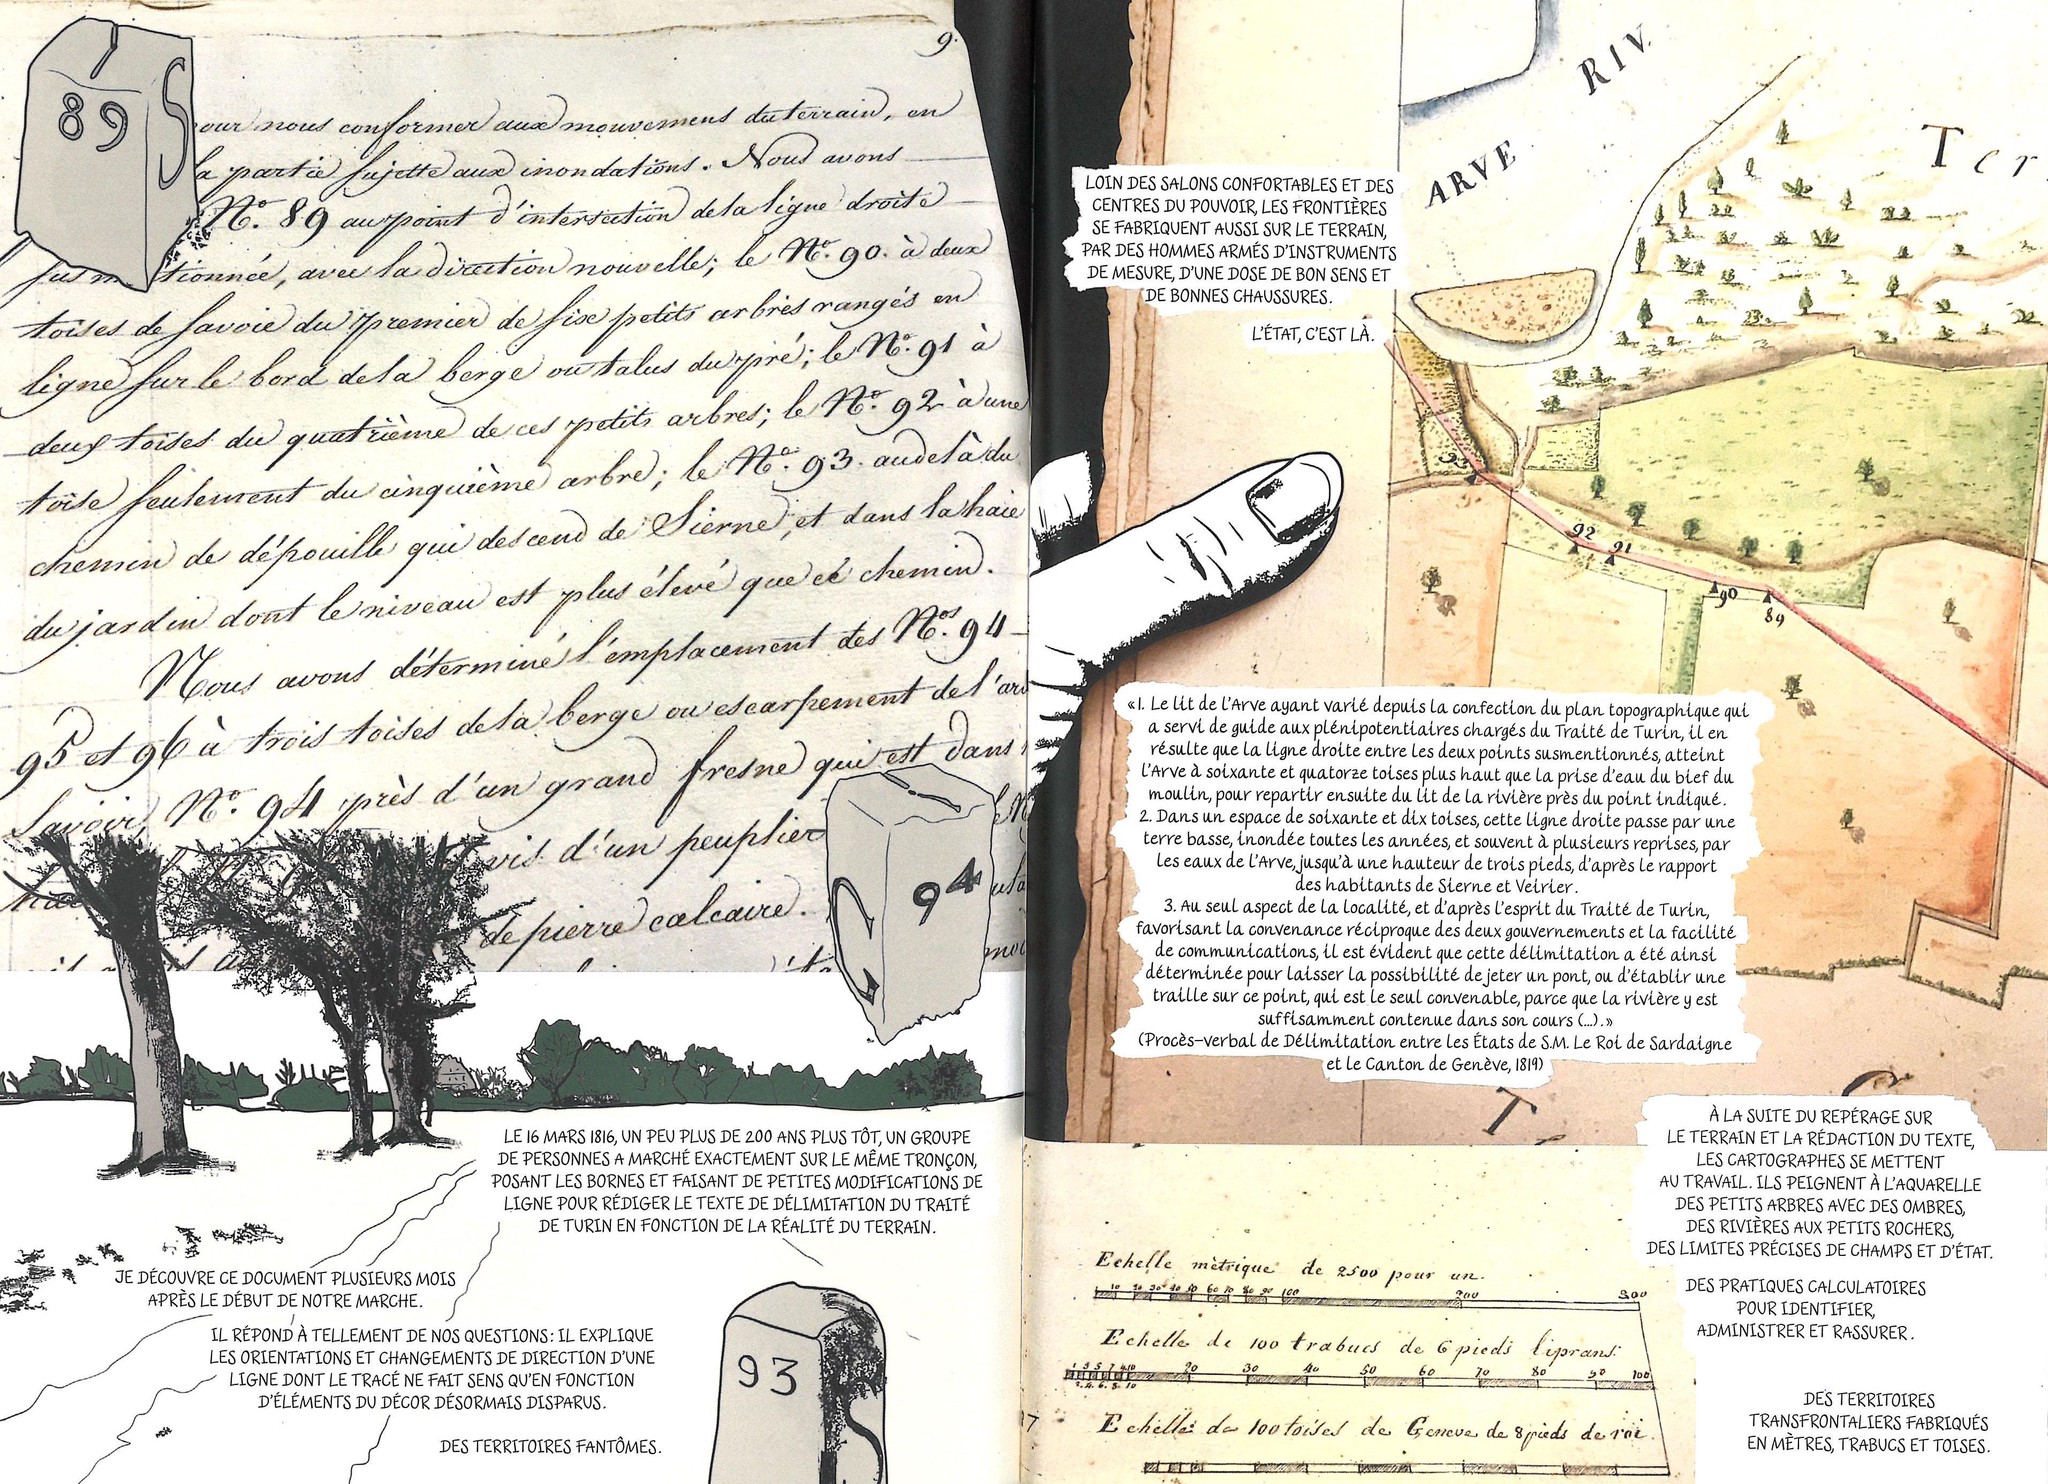 9.
89
S
pour nous conformer aux mouvemens du terrain, en
la partie sujette aux inondations. Nous avons
No. 89 au point d'intersection de la ligne droite
susmentionnée, avec la direction nouvelle; le No. 90. à deux
toises de Savoie du premier de six petits arbres rangés en
ligne sur le bord de la berge ou talus du pré; le No. 91 à
deux toises du quatrième de ces petits arbres; le No. 92 à une
toise seulement du cinquième arbre; le No. 93. au delà du
chemin de dépouille qui descend de Sierne, et dans la haie
du jardin dont le niveau est plus élevé que ce chemin.
Nous avons déterminé l'emplacement des Nos. 94
95 et 96 à trois toises de la berge ou escarpement de l'arv
Savoir, No. 94 près d'un grand fresne qui est dans
vis d'un peuplier
94
de pierre calcaire.
LE 16 MARS 1816, UN PEU PLUS DE 200 ANS PLUS TÔT, UN GROUPE
DE PERSONNES A MARCHÉ EXACTEMENT SUR LE MÊME TRONÇON,
POSANT LES BORNES ET FAISANT DE PETITES MODIFICATIONS DE
LIGNE POUR RÉDIGER LE TEXTE DE DÉLIMITATION DU TRAITÉ
DE TURIN EN FONCTION DE LA RÉALITÉ DU TERRAIN.
JE DÉCOUVRE CE DOCUMENT PLUSIEURS MOIS
APRÈS LE DÉBUT DE NOTRE MARCHE.
IL RÉPOND À TELLEMENT DE NOS QUESTIONS: IL EXPLIQUE
LES ORIENTATIONS ET CHANGEMENTS DE DIRECTION D'UNE
LIGNE DONT LE TRACÉ NE FAIT SENS QU'EN FONCTION
D'ÉLÉMENTS DU DÉCOR DÉSORMAIS DISPARUS.
DES TERRITOIRES FANTÔMES.
93
S
ARVE RIV
Ter
LOIN DES SALONS CONFORTABLES ET DES
CENTRES DU POUVOIR, LES FRONTIÈRES
SE FABRIQUENT AUSSI SUR LE TERRAIN,
PAR DES HOMMES ARMÉS D'INSTRUMENTS
DE MESURE, D'UNE DOSE DE BON SENS ET
DE BONNES CHAUSSURES.
L'ÉTAT, C'EST LÀ.
93
92
91
90
89
«1. Le lit de l'Arve ayant varié depuis la confection du plan topographique qui
a servi de guide aux plénipotentiaires chargés du Traité de Turin, il en
résulte que la ligne droite entre les deux points susmentionnés, atteint
l'Arve à soixante et quatorze toises plus haut que la prise d'eau du bief du
moulin, pour repartir ensuite du lit de la rivière près du point indiqué.
2. Dans un espace de soixante et dix toises, cette ligne droite passe par une
terre basse, inondée toutes les années, et souvent à plusieurs reprises, par
les eaux de l'Arve, jusqu'à une hauteur de trois pieds, d'après le rapport
des habitants de Sierne et Veirier.
3. Au seul aspect de la localité, et d'après l'esprit du Traité de Turin,
favorisant la convenance réciproque des deux gouvernements et la facilité
de communications, il est évident que cette délimitation a été ainsi
déterminée pour laisser la possibilité de jeter un pont, ou d'établir une
traille sur ce point, qui est le seul convenable, parce que la rivière y est
suffisamment contenue dans son cours (...).»
(Procès-verbal de Délimitation entre les États de S.M. Le Roi de Sardaigne
et le Canton de Genève, 1819)
T
À LA SUITE DU REPÉRAGE SUR
LE TERRAIN ET LA RÉDACTION DU TEXTE,
LES CARTOGRAPHES SE METTENT
AU TRAVAIL. ILS PEIGNENT À L'AQUARELLE
DES PETITS ARBRES AVEC DES OMBRES,
DES RIVIÈRES AUX PETITS ROCHERS,
DES LIMITES PRÉCISES DE CHAMPS ET D'ÉTAT.
DES PRATIQUES CALCULATOIRES
POUR IDENTIFIER,
ADMINISTRER ET RASSURER.
DES TERRITOIRES
TRANSFRONTALIERS FABRIQUÉS
EN MÈTRES, TRABUCS ET TOISES.
Echelle mètrique de 2500 pour un.
10 20 30 40 50 60 70 80 90 100 200 300
Echelle de 100 trabucs de 6 pieds liprans:
20 30 40 50 60 70 80 90 100
Echelle de 100 toises de Geneve de 8 pieds de roi.